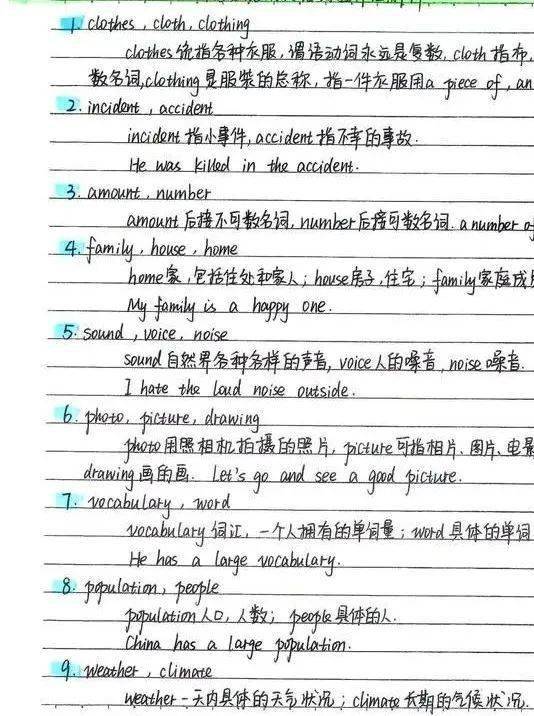 1. clothes, cloth, clothing
clothes统指各种衣服,谓语动词永远是复数, cloth指布,
数名词,clothing是服装的总称,指一件衣服用a piece of, an
2. incident, accident
incident指小事件, accident指不幸的事故.
He was killed in the accident.
3. amount, number
amount后接不可数名词, number后接可数名词. a number of
4. family, house, home
home家,包括住处和家人; house房子,住宅; family家庭成
My family is a happy one.
5. sound, voice, noise
sound自然界各种各样的声音, voice人的嗓音, noise噪音.
I hate the loud noise outside.
6. photo, picture, drawing
photo用照相机拍摄的照片, picture可指相片、图片、电影
drawing画的画. Let's go and see a good picture.
7. vocabulary, word
vocabulary词汇,一个人拥有的单词量; word具体的单词
He has a large vocabulary.
8. population, people
population人口,人数; people具体的人.
China has a large population.
9. weather, climate
weather一天内具体的天气状况; climate长期的气候状况.